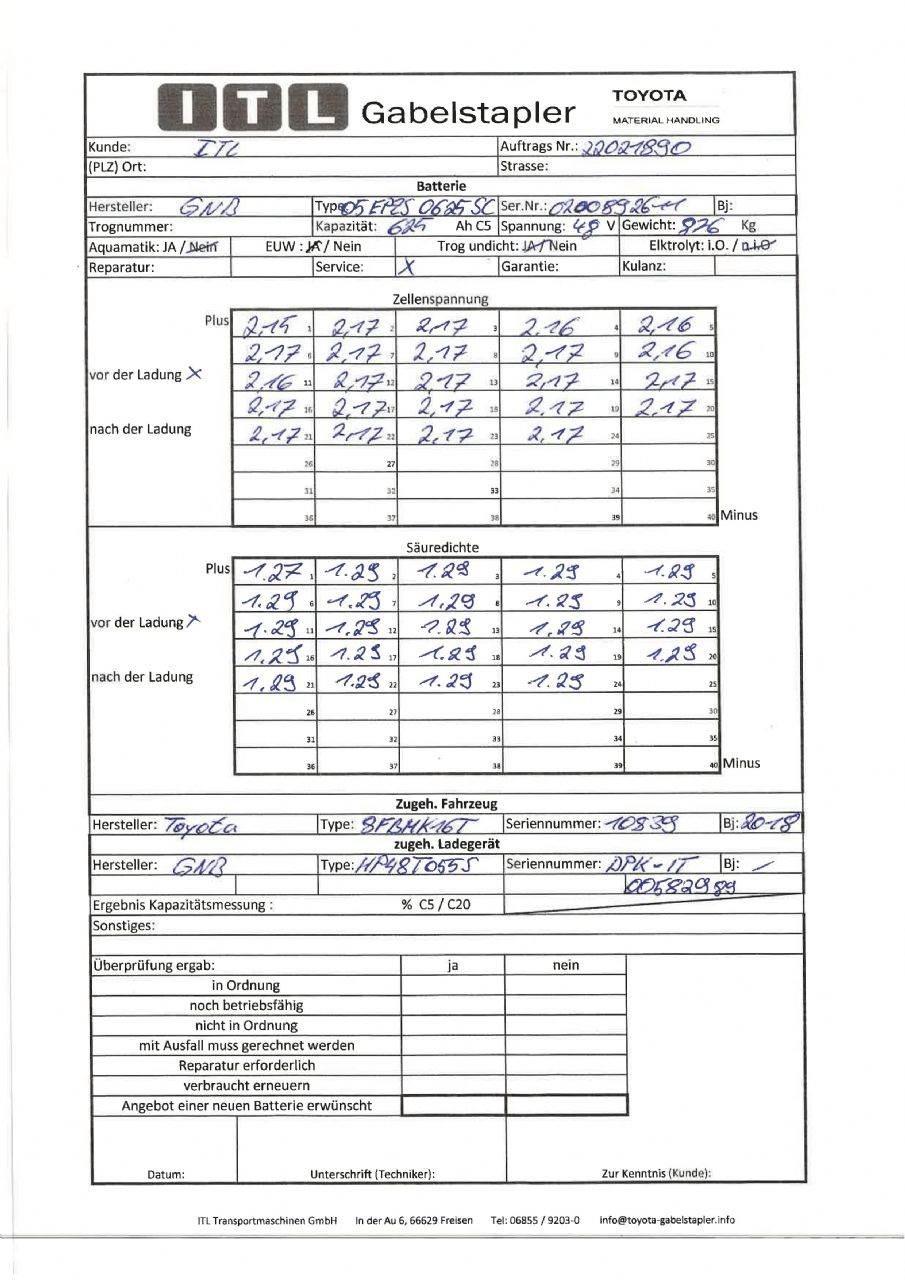 ITL Gabelstapler TOYOTA
MATERIAL HANDLING
Kunde: ITL Auftrags Nr.: 22021890
(PLZ) Ort: Strasse:
Batterie
Hersteller: GNB Type: 05 EPZS 0625 SC Ser.Nr.: 02008926-11 Bj:
Trognummer: Kapazität: 625 Ah C5 Spannung: 48 V Gewicht: 876 Kg
Aquamatik: JA / Nein EUW : JA / Nein Trog undicht: JA / Nein Elktrolyt: i.O. / n.i.O
Reparatur: Service: X Garantie: Kulanz:
Zellenspannung
Plus 2,15 1 2,17 2 2,17 3 2,16 4 2,16 5
2,17 6 2,17 7 2,17 8 2,17 9 2,16 10
vor der Ladung X 2,16 11 2,17 12 2,17 13 2,17 14 2,17 15
2,17 16 2,17 17 2,17 18 2,17 19 2,17 20
nach der Ladung 2,17 21 2,17 22 2,17 23 2,17 24 25
26 27 28 29 30
31 32 33 34 35
36 37 38 39 40 Minus
Säuredichte
Plus 1.27 1 1.29 2 1.29 3 1.29 4 1.29 5
1.29 6 1.29 7 1,29 8 1.29 9 1.29 10
vor der Ladung X 1.29 11 1,29 12 1.29 13 1,29 14 1.29 15
1,29 16 1.29 17 1.29 18 1.29 19 1,29 20
nach der Ladung 1,29 21 1.29 22 1.29 23 1.29 24 25
26 27 28 29 30
31 32 33 34 35
36 37 38 39 40 Minus
Zugeh. Fahrzeug
Hersteller: Toyota Type: 8FBMK16T Seriennummer: 10839 Bj: 2018
zugeh. Ladegerät
Hersteller: GNB Type: HP48T055S Seriennummer: DPK-IT Bj: /
005829 89
Ergebnis Kapazitätsmessung : % C5 / C20
Sonstiges:
Überprüfung ergab: ja nein
in Ordnung
noch betriebsfähig
nicht in Ordnung
mit Ausfall muss gerechnet werden
Reparatur erforderlich
verbraucht erneuern
Angebot einer neuen Batterie erwünscht
Datum: Unterschrift (Techniker): Zur Kenntnis (Kunde):
ITL Transportmaschinen GmbH In der Au 6, 66629 Freisen Tel: 06855 / 9203-0 info@toyota-gabelstapler.info